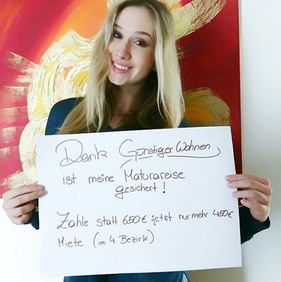 Dank Günstiger Wohnen
ist meine Maturareise
gesichert!
Zahle statt 650€ jetzt nur mehr 450€
Miete (im 4. Bezirk)